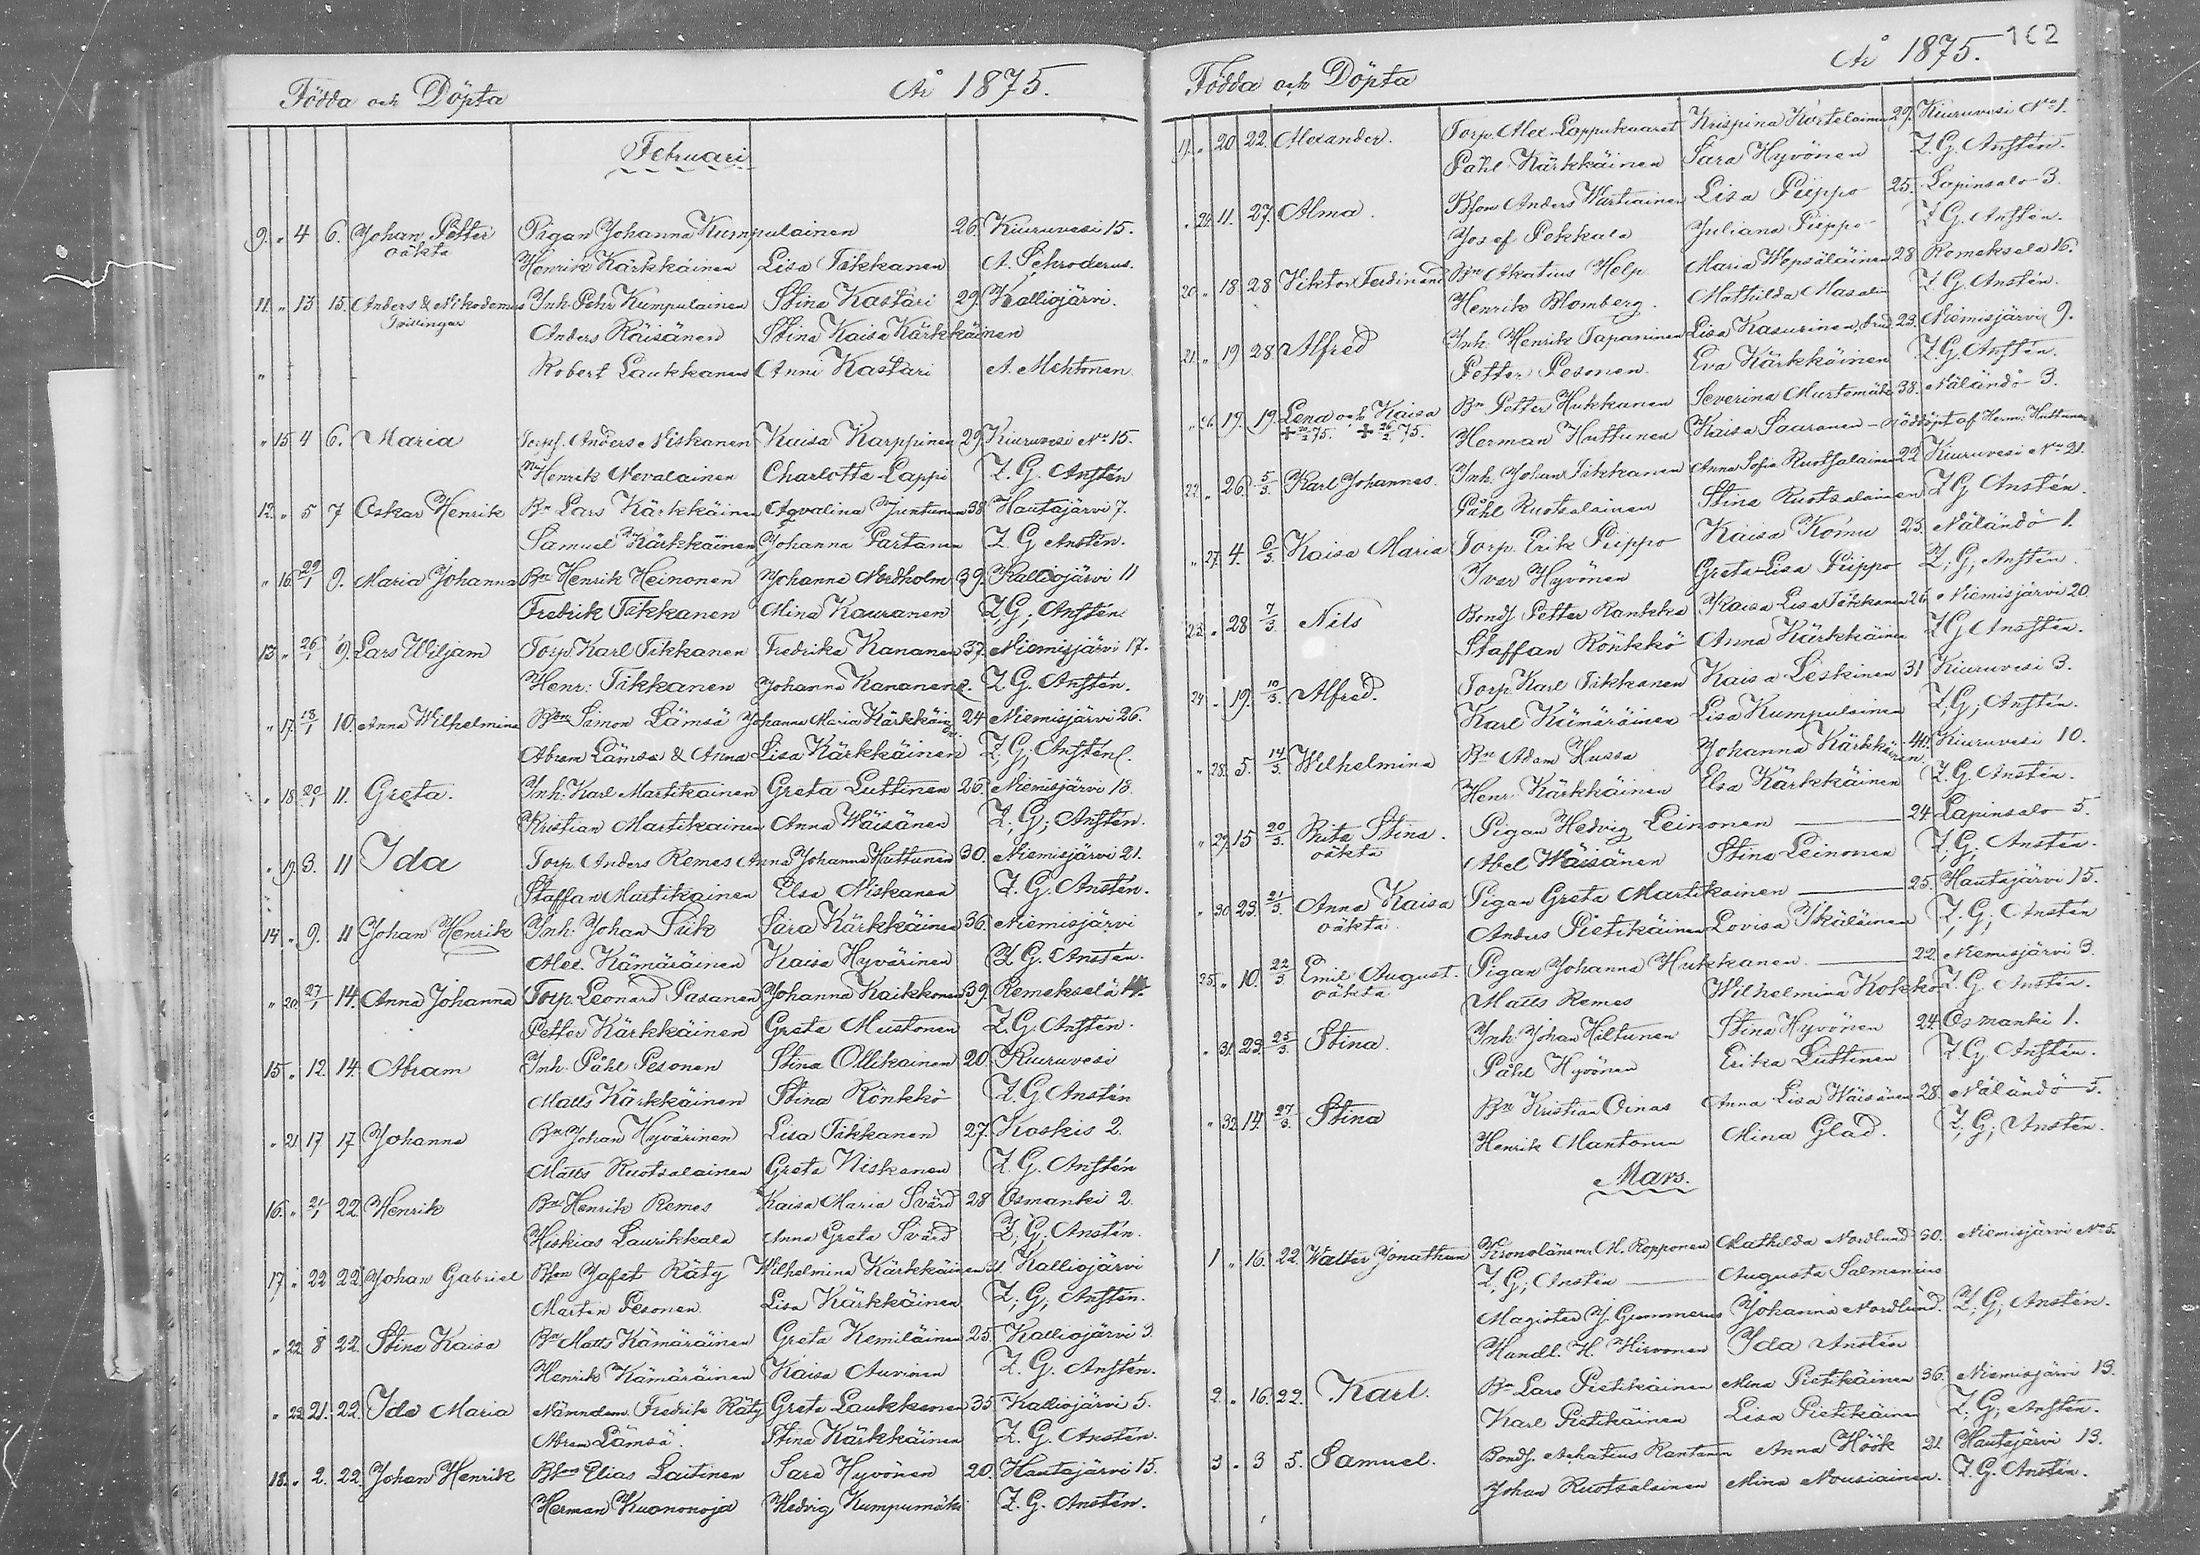 Födda och Döpta År 1875.
Februari
9. „ 4 6. Johan Petter Pigan Johanna Kumpulainen 26. Kiuruvesi 15.
oäkta Henrik Kärkkäinen Lisa Tikkanen A. Schroderus.
11. „ 13 15. Anders & Nikodemus Inh. Pehr Kumpulainen Stina Kastari 29. Kalliojärvi.
Tvillingar Anders Räisänen Stina Kaisa Kärkkäinen
„ Robert Laukkanen Anni Kastari A. Mehtonen.
„ 15. 4 6. Maria Torpf. Anders Niskanen Kaisa Karppinen 29. Kiuruvesi No 15.
Henrik Nevalainen Charlotta Lappi Z. G. Anstén
12. „ 5 7 Oskar Henrik Bn Lars Kärkkäinen Aqvalina Juntunen 38. Hautajärvi 7.
Samuel Kärkkäinen Johanna Partanen Z. G. Ansten.
„ 16. 29/1 9. Maria Johanna Bn Henrik Heinonen Johanna Nordholm 39. Kalliojärvi 11
Fredrik Tikkanen Mina Kauranen Z, G; Ansten.
13. „ 26/1 9. Lars Wiljam Torp. Karl Tikkanen Fredrika Kananen 37. Niemisjärvi 17.
Henr: Tikkanen Johanna Kananen Z. G. Ansten.
„ 17. 18/1 10. Anna Wilhelmina Bon Simon Lämsä Johanna Maria Kärkkäin 24 Niemisjärvi 26.
Abram Lämsa & Anna Lisa Kärkkäinen Z; G; Ansten.
„ 18. 20/1 11. Greta. Inh: Karl Martikainen Greta Luttinen 26. Niemisjärvi 18.
Kristian Martikainen Anna Wäisänen Z; G; Ansten.
„ 19. 3. 11 Ida Torp. Anders Remes Anna Johanna Huttunen 30. Niemisjärvi 21.
Staffan Martikainen Elsa Niskanen Z. G. Anstén.
14 „ 9. 11 Johan Henrik Inh. Johan Siik Sara Kärkkäinen 36. Niemisjärvi
Alex. Kämäräinen Kaisa Hyvärinen Z. G. Anstén.
„ 20. 27/1 14. Anna Johanna Torp. Leonard Pasanen Johanna Kaikkonen 39. Remekselä
Petter Kärkkäinen Greta Mustonen Z. G. Ansten.
15 „ 12. 14. Abram Inh. Påhl Pesonen Stina Ollikainen 20. Kiuruvesi
Matts Kärkkäinen Stina Rönkkö Z. G. Anstén
„ 21. 17 17. Johanna Bn Johan Hyvärinen Lisa Tikkanen 27. Koskis 2.
Matts Ruotsalainen Greta Niskanen Z. G. Anstén
16. „ 21/1 22. Henrik Bn Henrik Remes Kaisa Maria Svärd 28 Osmanki 2.
Hiskias Laurikkala Anna Greta Svärd Z; G; Anstén.
17. „ 22 22. Johan Gabriel Bson Jafet Räty Wilhelmina Kärkkäinen Kalliojärvi
Martin Pesonen. Lisa Kärkkäinen Z; G; Ansten.
„ 22. 8 22. Stina Kaisa Bn Matts Kämäräinen Greta Kemiläinen 25. Kalliojärvi 3.
Henrik Kämäräinen Kaisa Auvinen Z. G. Anstén.
„ 23. 21. 22. Ida Maria Nämndem. Fredrik Räty Greta Laukkanen 35 Kalliojärvi 5.
Abram Lämsä. Stina Kärkkäinen Z. G. Anstén.
18. „ 2. 22. Johan Henrik Elias Laitinen Sara Hyvönen 20. Hautajärvi 15.
Herman Kuononoja Hedvig Kumpumäki Z. G. Anstén.
Födda och Döpta År 1875. 162
19. „ 20 22. Alexander. Torp. Alex. Lappukaaret Krispina Kortelainen 29. Kiuruvesi No 1.
Påhl Kärkkäinen Sara Hyvönen Z. G. Anstén.
„ 24. 11. 27. Alma. Bson Anders Wartiainen Lisa Piippo 25. Lapinsalo 3.
Josef Pekkala Juliana Piippo Z G. Ansten.
20 „ 18 28 Viktor Ferdinand Bn Akatius Help Maria Wepsäläinen 28 Remeksela 16.
Henrik Blomberg. Mathilda Masalin Z. G. Anstén.
21. „ 19. 28 Alfred Inh: Henrik Tapaninen Lisa Kasurinen 23. Niemisjärvi 9.
Petter Pesonen. Eva Kärkkäinen Z. G. Ansten.
„ 26. 19. 19. Lena och Kaisa Bn Petter Hukkanen Severina Murtomäki 38. Näländö 3.
Herman Huttunen Kaisa Saaranen - nöddöpt af Herm: Huttunen
22. „ 26. 5/3. Karl Johannes. Inh. Johan Tikkanen Anna Sofia Ruotsalainen 22 Kiuruvesi No 21.
Påhl Ruotsalainen Stina Ruotsalainen Z G Anstén.
„ 27. 4. 6/3. Kaisa Maria Torp. Erik Piippo Kaisa Komu 25. Näländö 1.
Ivar Hyvönen Greta Lisa Piippo Z; G; Anstén.
23. „ 28 7/3. Nils Bondf Petter Rankka Kaisa Lisa Tikkanen 26 Niemisjärvi 20.
Staffan Rönkkö Anna Kärkkäinen Z G Ansten.
24. „ 19. 10/3. Alfred. Torp Karl Tikkanen Kaisa Leskinen 31 Kiuruvesi 3.
Karl Kämäräinen Lisa Kumpulainen Z, G; Ansten.
„ 28. 5. 14/3. Wilhelmina Bn Adam Hussa Johanna Kärkkäinen 41. Kiuruvesi 10.
Henr. Kärkkäinen Elsa Kärkkäinen Z. G. Anstén.
„ 29. 15 20/3. Rita Stina. Pigan Hedvig Leinonen 24. Lapinsalo 5.
oäkta Abel Wäisänen Stina Leinonen Z, G; Ansten.
„ 30. 23. 21/3. Anna Kaisa Pigan Greta Martikainen 25. Hautajärvi 15.
oäkta. Anders Pietikäinen Lovisa Ikäläinen Z, G; Anstén
25. „ 10. 22/3 Emil August. Pigan Johanna Hukkanen. 22. Niemisjärvi 3.
oäkta Matts Remes Wilhelmina Kokko Z. G. Anstén.
„ 31. 23. 25/3. Stina. Inh: Johan Hiltunen Stina Hyvönen 24. Osmanki 1.
Påhl Hyvönen Erika Luttinen Z. G. Anstén.
„ 32. 14. 27/3. Stina Bn Kristian Oinas Anna Lisa Wäisänen 28. Näländö 5.
Henrik Mantonen Mina Glad. Z, G; Ansten.
Mars.
1 „ 16. 22. Walter Jonathan Kronolänsm. M. Ropponen Mathilda Nordlund 30. Niemisjärvi No 5.
Z, G; Anstén Augusta Salmenius
Magister J. Gummerus Johanna Nordlund. Z, G; Ansten.
Handl. H. Hirvonen Ida Ansten
2. „ 16. 22. Karl. Bn Lars Pietikäinen Mina Pietikäinen 36. Niemisjärvi 13.
Karl Pietikäinen Lisa Pietikäinen Z; G; Ansten.
3 „ 3 5. Samuel. Bondf. Achatius Rantanen Anna Höök 21. Hautajärvi 13.
Johan Ruotsalainen Mina Nousiainen. Z. G. Anstén.